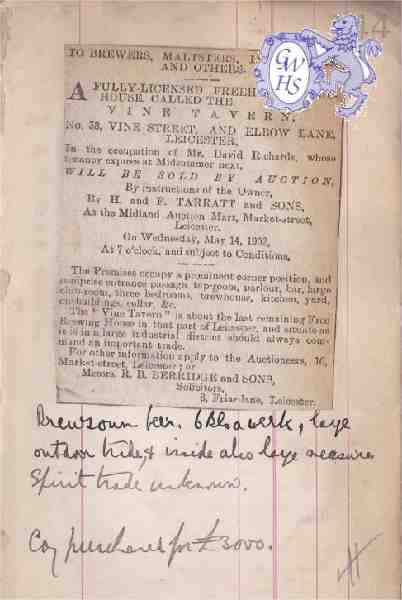 14
GWHS
TO BREWERS, MALTSTERS,
AND OTHERS.
A FULLY-LICENSED FREEH
HOUSE CALLED THE
VINE TAVERN,
No. 38, VINE-STREET, AND ELBOW LANE,
LEICESTER,
In the occupation of Mr. David Richards, whose
tenancy expires at Midsummer next,
WILL BE SOLD BY AUCTION,
By instructions of the Owner,
By H. and F. TARRATT and SONS,
At the Midland Auction Mart, Market-street,
Leicester,
On Wednesday, May 14, 1902,
At 7 o'clock, and subject to Conditions.
The Premises occupy a prominent corner position, and
comprise entrance passage, tap-room, parlour, bar, large
club-room, three bedrooms, brewhouse, kitchen, yard,
outbuildings, cellar, &c.
The "Vine Tavern" is about the last remaining Free
Brewing House in that part of Leicester, and situate as
it is in a large industrial district should always com-
mand an important trade.
For other information apply to the Auctioneers, 16,
Market-street, Leicester; or
Messrs. R. B. BERRIDGE and SONS,
Solicitors,
Friar-lane, Leicester.
Brews own beer. 6 Bls a week, large
outdoor trade, & inside also large measures
Spirit trade unknown.
Coy purchased for £3000.